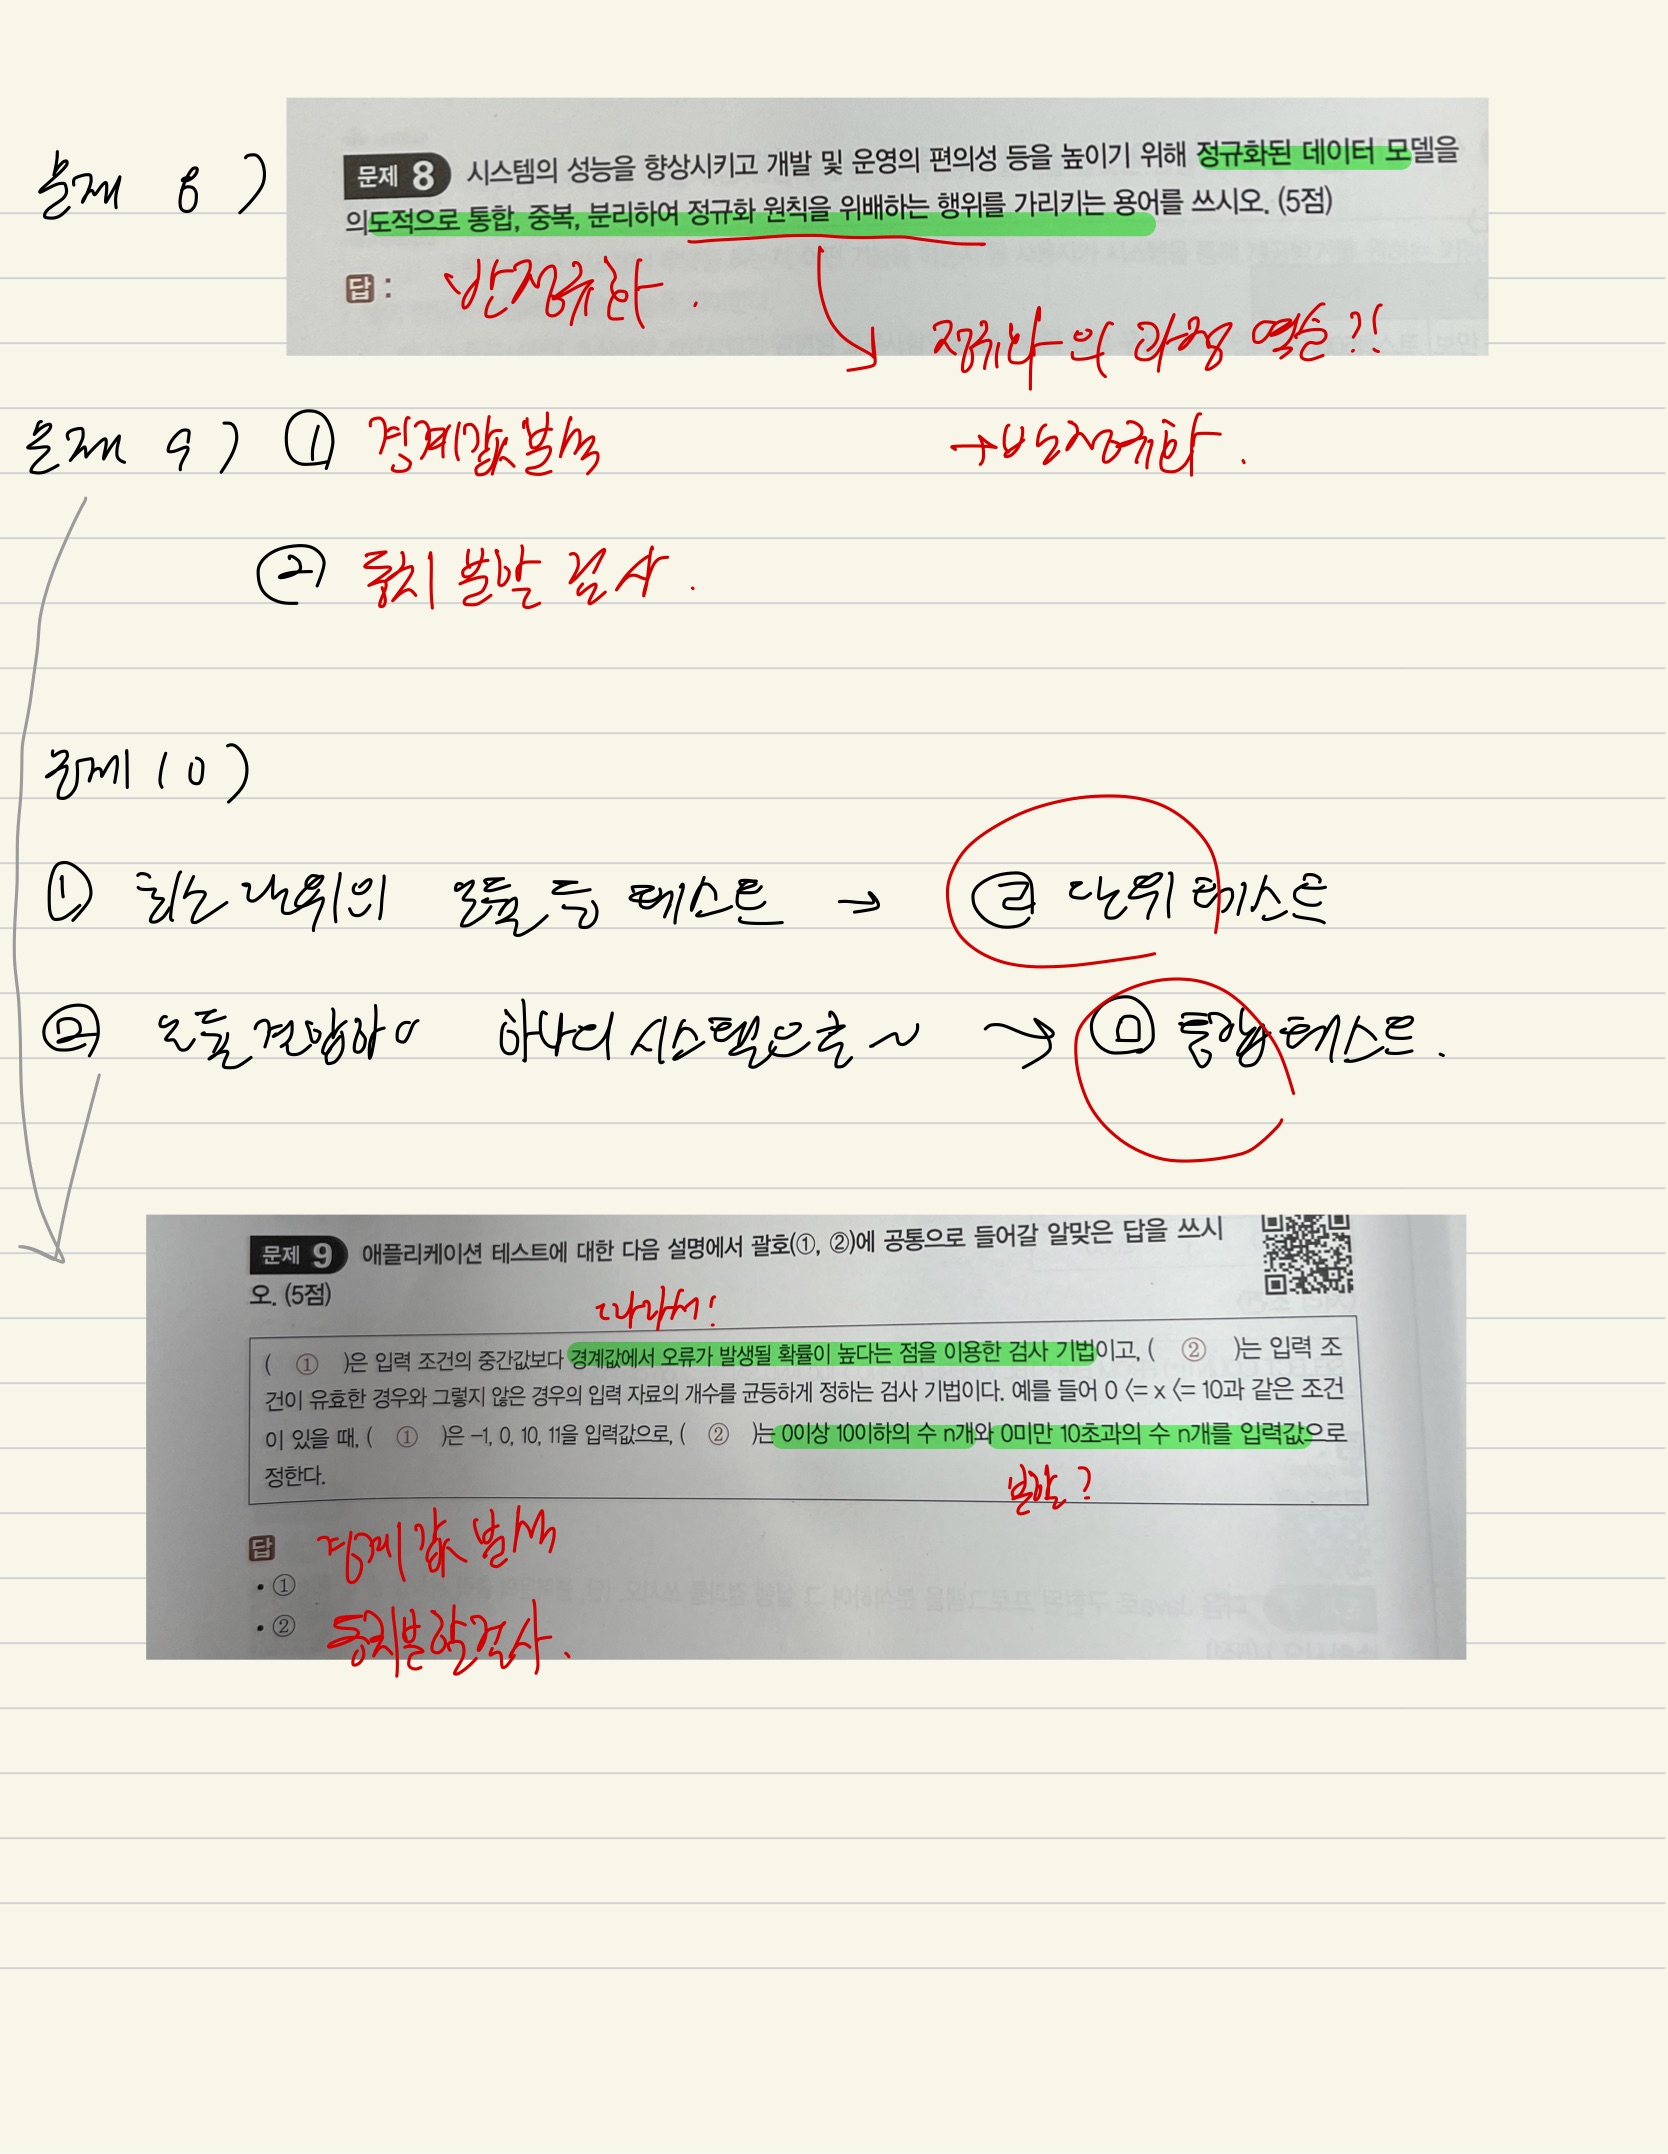 문제 8)
문제 8 시스템의 성능을 향상시키고 개발 및 운영의 편의성 등을 높이기 위해 정규화된 데이터 모델을
의도적으로 통합, 중복, 분리하여 정규화 원칙을 위배하는 행위를 가리키는 용어를 쓰시오. (5점)
답 : 반정규화.
정규화의 과정 역순?!
→ 반정규화.
문제 9) ① 경계값분석
② 동치 분할 검사.
문제 10)
① 최소 단위의 모듈 등 테스트 → ㄹ 단위 테스트
② 모듈 결합하여 하나의 시스템으로 ~ → ㅁ 통합 테스트.
문제 9 애플리케이션 테스트에 대한 다음 설명에서 괄호(①, ②)에 공통으로 들어갈 알맞은 답을 쓰시
오. (5점)
따라서!
( ① )은 입력 조건의 중간값보다 경계값에서 오류가 발생될 확률이 높다는 점을 이용한 검사 기법이고, ( ② )는 입력 조
건이 유효한 경우와 그렇지 않은 경우의 입력 자료의 개수를 균등하게 정하는 검사 기법이다. 예를 들어 0 <= x <= 10과 같은 조건
이 있을 때, ( ① )은 -1, 0, 10, 11을 입력값으로, ( ② )는 0이상 10이하의 수 n개와 0미만 10초과의 수 n개를 입력값으로
정한다.
분할?
답
• ① 경계값 분석
• ② 동치분할검사.